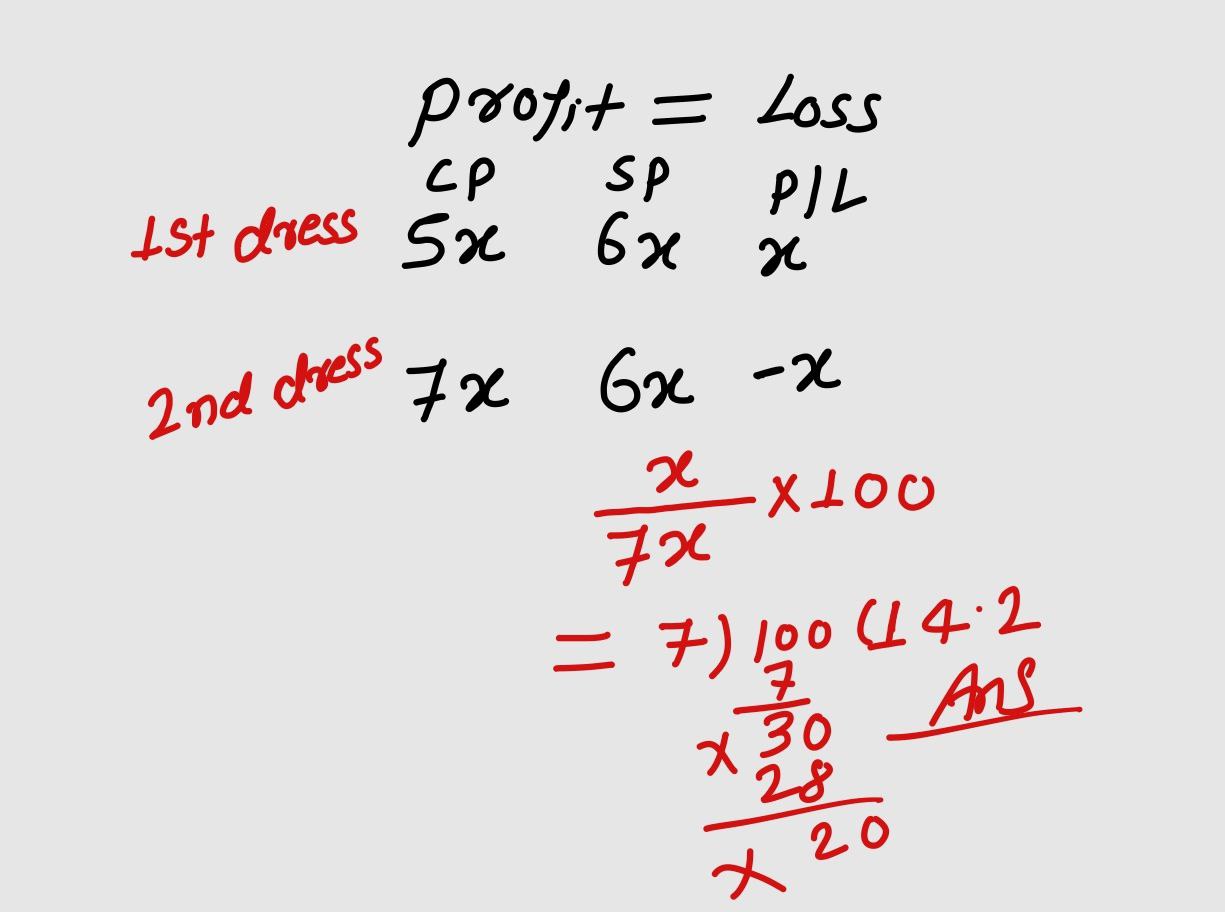 Profit = Loss
CP SP P/L
1st dress 5x 6x x
2nd dress 7x 6x -x
x
7x
×100
= 7)100(14.2
7
× 30
Ans
28
× 20